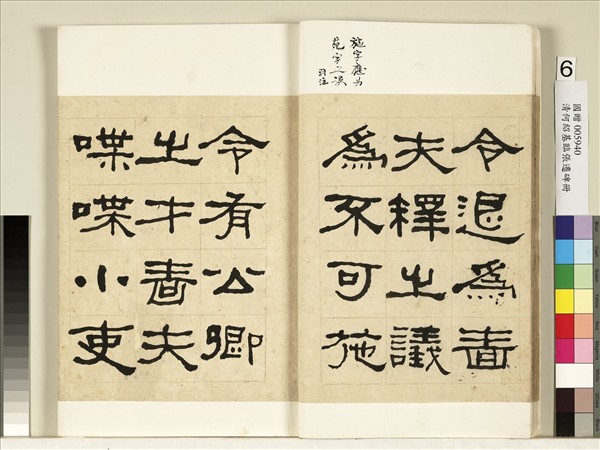 施字應为
苑字之误
羽注
令退為嗇
夫釋之議
為不可施
令有公卿
之才嗇夫
喋喋小吏
6
國贈 005940
清何紹基臨張遷碑冊